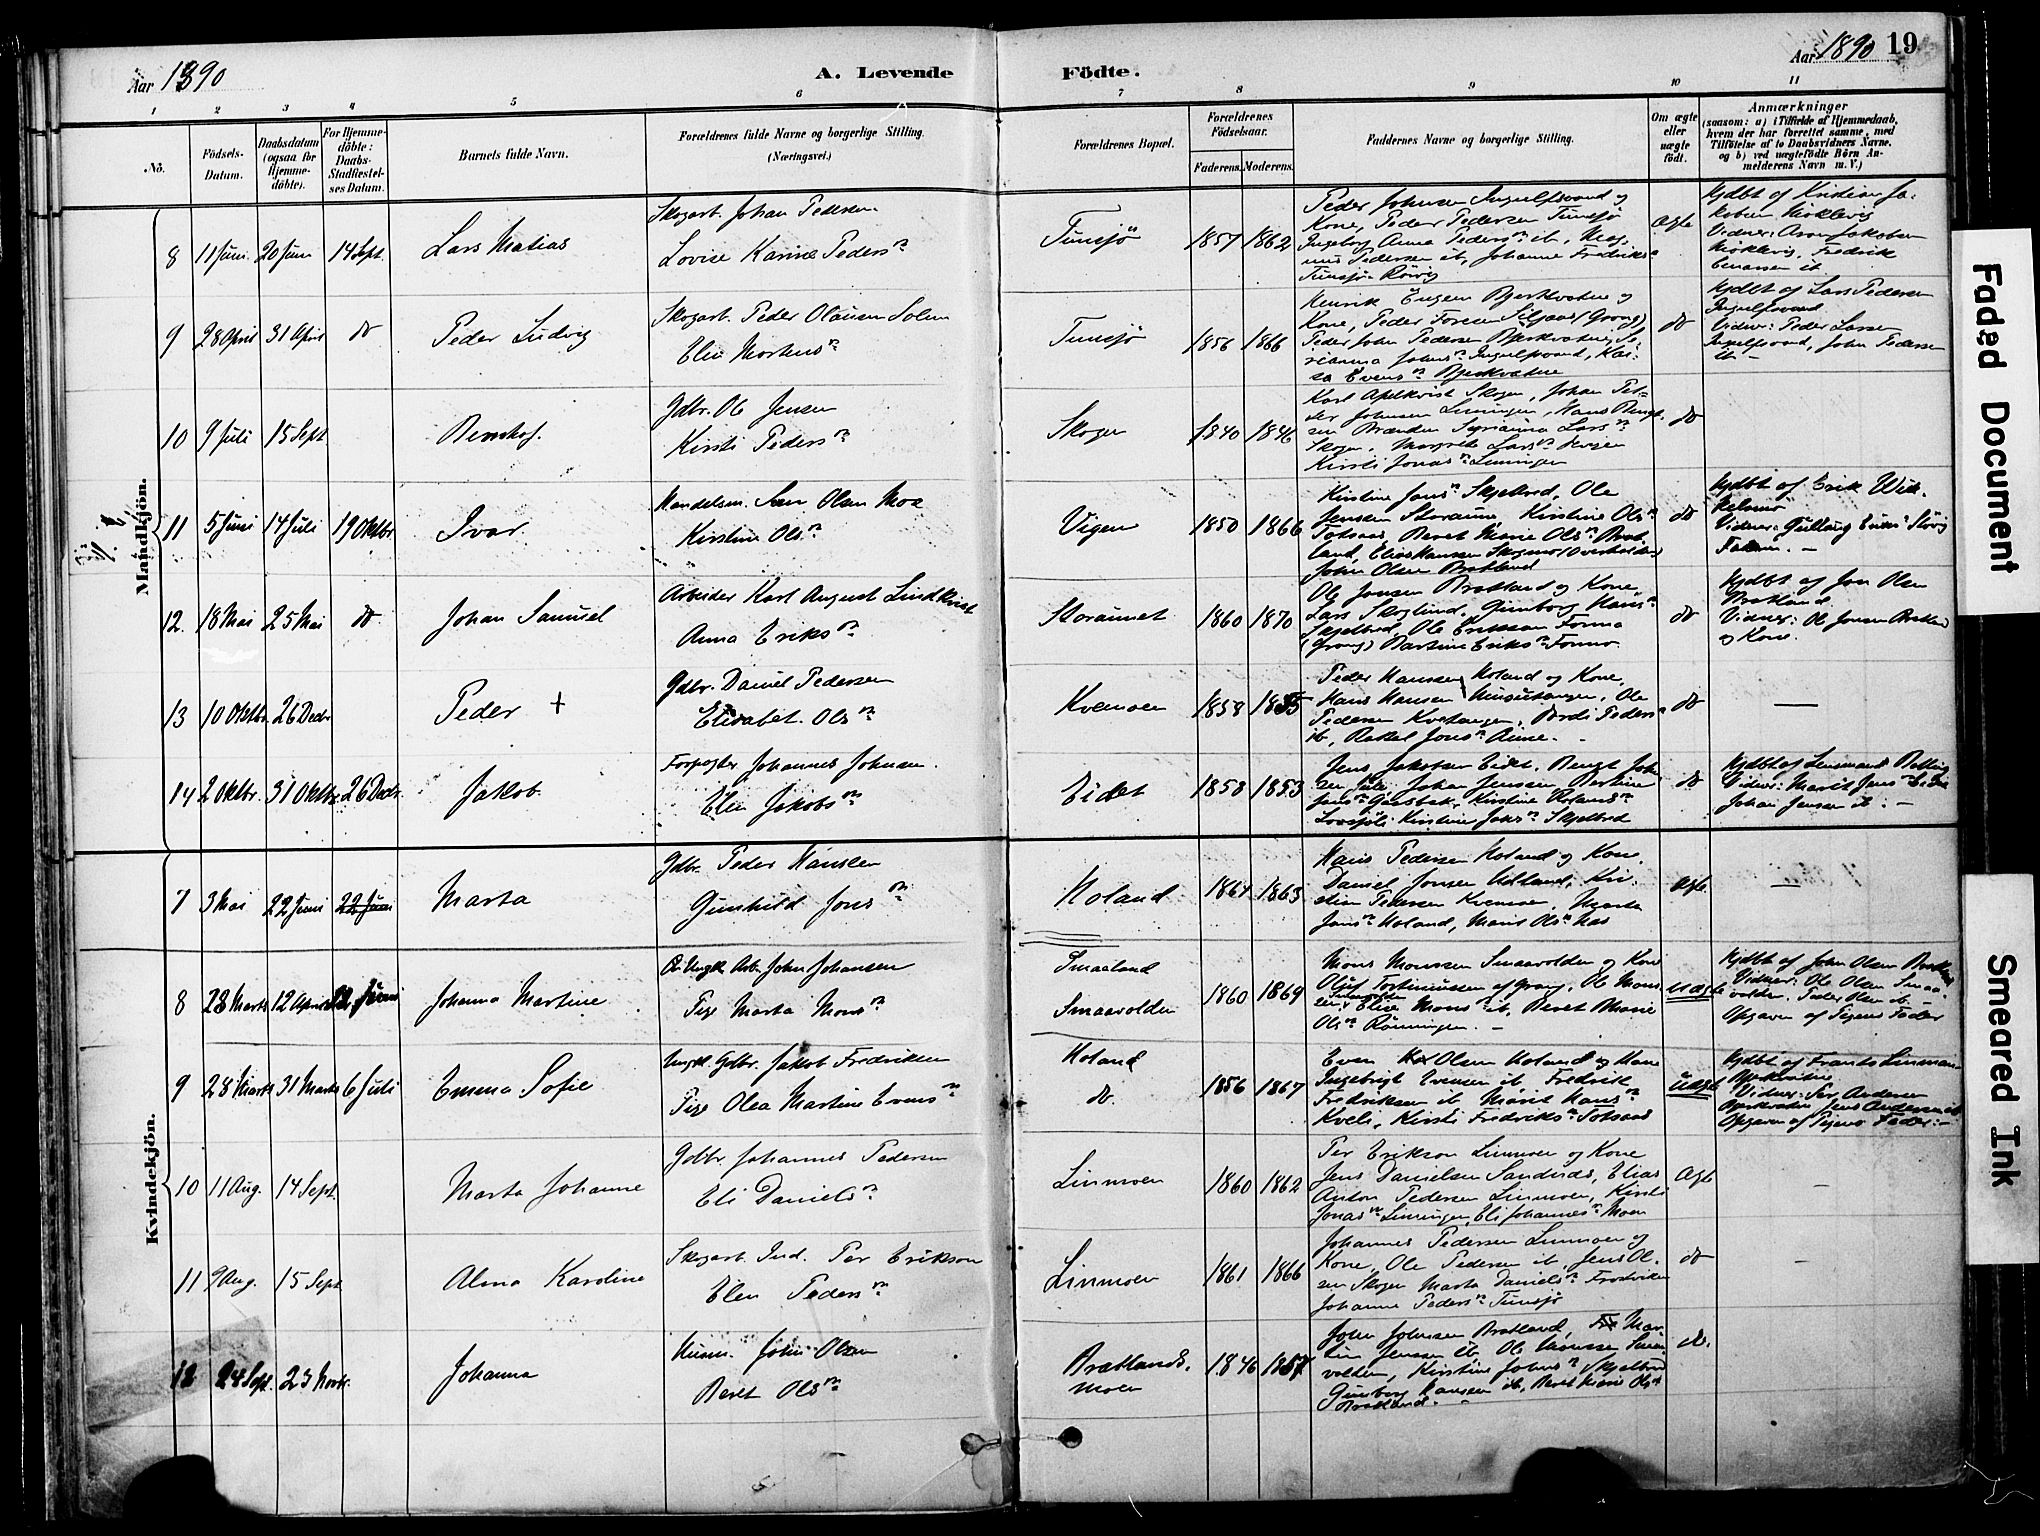 Aar 1890
A. Levende
Födte.
Aar 1890
19
1 2 3 4 5 6 7 8 9 10 11
No.
Födsels-Datum.
Daabsdatum (ogsaa for Hjemme-döbte).
For Hjemme-döbte: Daabs-Stadfæstel-ses Datum.
Barnets fulde Navn.
Forældrenes fulde Navne og borgerlige Stilling.
(Næringsvei.)
Forældrenes Bopæl.
Forældrenes Födselsaar.
Faderens. Moderens.
Faddernes Navne og borgerlige Stilling.
Om ægte eller uægte födt.
Anmærkninger
(saasom: a) i Tilfælde af Hjemmedaab,
hvem der har forrettet samme, med
Tilföielse af to Daabsvidners Navne,
og b) ved uægtefödte Börn An-
melderens Navn m. V.)
Mandkjön.
8 11 Juni. 20 Juni 14 Sept. Lars Matias
Skogarb. Johan Pedersen
Lovise Karine Pedersdr
Tunsjö 1857 1862
Peder Johnsen Ingulfsvand og
Kone, Peder Pedersen Tunsjø
Ingeborg Anna Pedersdr ib, Mag-
nus Pedersen ib, Johanne Fredriksdr
Tunsjø Rörvig
Ægte
Hjdbt af Kristian Ja-
kobsen Mörklevig
Vidner: Aron Jakobsen
Mörklevig, Fredrik
ib
9 28 April 31 April do Peder Ludvig
Skogarb. Peder Olausen Solem
Elen Mortensdr
Tunsjö 1856 1866
Henrik Eugen Bjerkvatne og
Kone, Peder Grong
Peder John Pedersen Bjerkvatne, Se-
rianna Johnsdr Ingulfsvand, Kai-
sa Evensdr Bjerkvatne
do
Hjdbt af Lars Pedersen
Ingulfsvand
Vidner: Peder Larsen
Ingulfsvand, John Pedersen
ib –
10 9 Juli 15 Sept Bernhof.
Gdbr. Ole Jensen
Kirsti Pedersdr
Skogen 1840 1846
Karl Apelkvist Skogen, Johan Pet-
ter Johnsen Limingen, Hans Bengt-
sen Brænden Serianna Larsdr
Skogen, Margrete Larsdr
Kirsti Jonasdr Limingen
do
11 5 Juni 14 Juli 19 Oktbr Ivar.
Handelsm. Olsen Moe
Kirstine Olsdr
Vigen 1850 1866
Kirstine Jonsdr Skjelbred, Ole
Jensen Storaunet, Kirstine Olsdr
Totsaas, Beret Marie Olsdr Brat-
land, Elias Hansen Skogmo (Overhalden)
John Olsen Brotland
do
Hjdbt af Erik Wil-
helmsø
Vidner: Gullaug
Faderen. –
12. 18 Mai 25 Mai do Johan Samuel
Arbeider Karl August Lindkvist
Anna Eriksdr
Storaunet 1860 1870
Ole Jonsen Bratland og Kone,
Lars Skoglund, Gunborg Hansdr
Skjelbred, Ole Eriksen Formo
(Grong) Bartine Eriksdr Formo.
do
Hjdbt af Jon Olsen
Bratland
Vidner: Ole Jonsen Bratland
og Kone.
13 10 Oktbr. 26 Decbr Peder +
Gdbr. Daniel Pedersen
Elisabet Olsdr
Kvemoen 1858 1855
Peder Hanssen Holand og Kone,
Hans Hansen Ole
Pedersen Kvetangen, Bordi Pedersdr
ib, Rakel Jonsdr Aune.
do
—
14 2 Oktbr. 31 Oktbr. 26 Decbr. Jakob
Forpagter Johannes Johnsen.
Elen Jakobsdr
Eidet 1858 1853
Jens Jakobsen Eidet, Bengt John-
sen Johan Jenssen Bertine
Jensdr Kirstine Rolandsdr
Kirstine Johnsdr Skjelbred
do
Hjdbt af Lensmand
Vidner: Marit Jensdr Eidet
Johan Jensen ib. –
Kvindekjön.
7 3 Mai 22 Juni 22 Juni Marta
Gdbr. Peder Hansen
Gunhild Jonsdr
Holand 1864 1863
Hans Pedersen Holand og Kone.
Daniel Jonsen Udland, Kri-
stian Pedersen Kvemoen, Marta
Jonsdr Holand, Marit Olsdr Næs
Ægte.
—
8 28 Marts 12 April 22 Juni Johanna Martine
Ungk. Arb. John Johansen
Pige Marta Monsdr
Smaaland
Smaavolden 1860 1869
Mons Monssen Smaavolden og Kone
Oluf Torstenussen af Grong, Ole Mons-
sen Smaavolden, Elise Monsdr ib, Beret Marie
Olsdr Rönningen. –
Uægte
Hjdbt af John Olsen Bratland
Vidner: Ole Olsen Smaa-
volden, Peder Olsen ib –
Opgaven af Pigens Fader
9 28 Marts 31 Marts 6 Juli Emma Sofie
Ungk. Gdbr. Jakob Fredriksen
Pige Olea Martine Evensdr
Holand
do. 1856 1867
Even Olsen Holand og Kone
Ingebrigt Evensen ib, Fredrik
Fredriksen ib Marit Hansdr
Kveli, Kirsti Fredriksdr Totsaas
Uægte
Hjdbt af Frants Linmoen
Bjerkvatne
Vidner: Per Andersen
Bjerkvatne Jens Andersen ib
Opgaven af Pigens Fader. –
10 11 Aug. 14 Sept. Marta Johanne
Gdbr. Johannes Pedersen
Eli Danielsdr
Linmoen 1860 1862
Per Erikson Linmoen og Kone
Jens Danielsen Sandnäs, Elias
Anton Pedersen Linmoen, Kirsti
Jonasdr Limingen, Eli Johannesdr Moen
Ægte
–
11 9 Aug. 15 Sept Alma Karoline
Skogarb. Ind. Per Erikson
Elen Pedersdr
Linmoen 1861 1866
Johannes Pedersen Linmoen og
Kone, Ole Pedersen ib, Jens Ol-
sen Skogen Marta Danielsdr
Johanne Pedersdr Tunsjö
do
–
12 24 Sept. 23 Novbr. Johanna
Husm. John Olsen
Beret Olsdr
Brætlands-
moen 1846 1857
John Johnsen Bratland, Mar-
tin Jensen ib, Ole Monssen Smaa-
volden, Kirstine Johnsdr Skjelbred
Gunborg Hansen ib, Beret Marie Olsdr
Bratland. –
do.
Faded Document
Smeared Ink